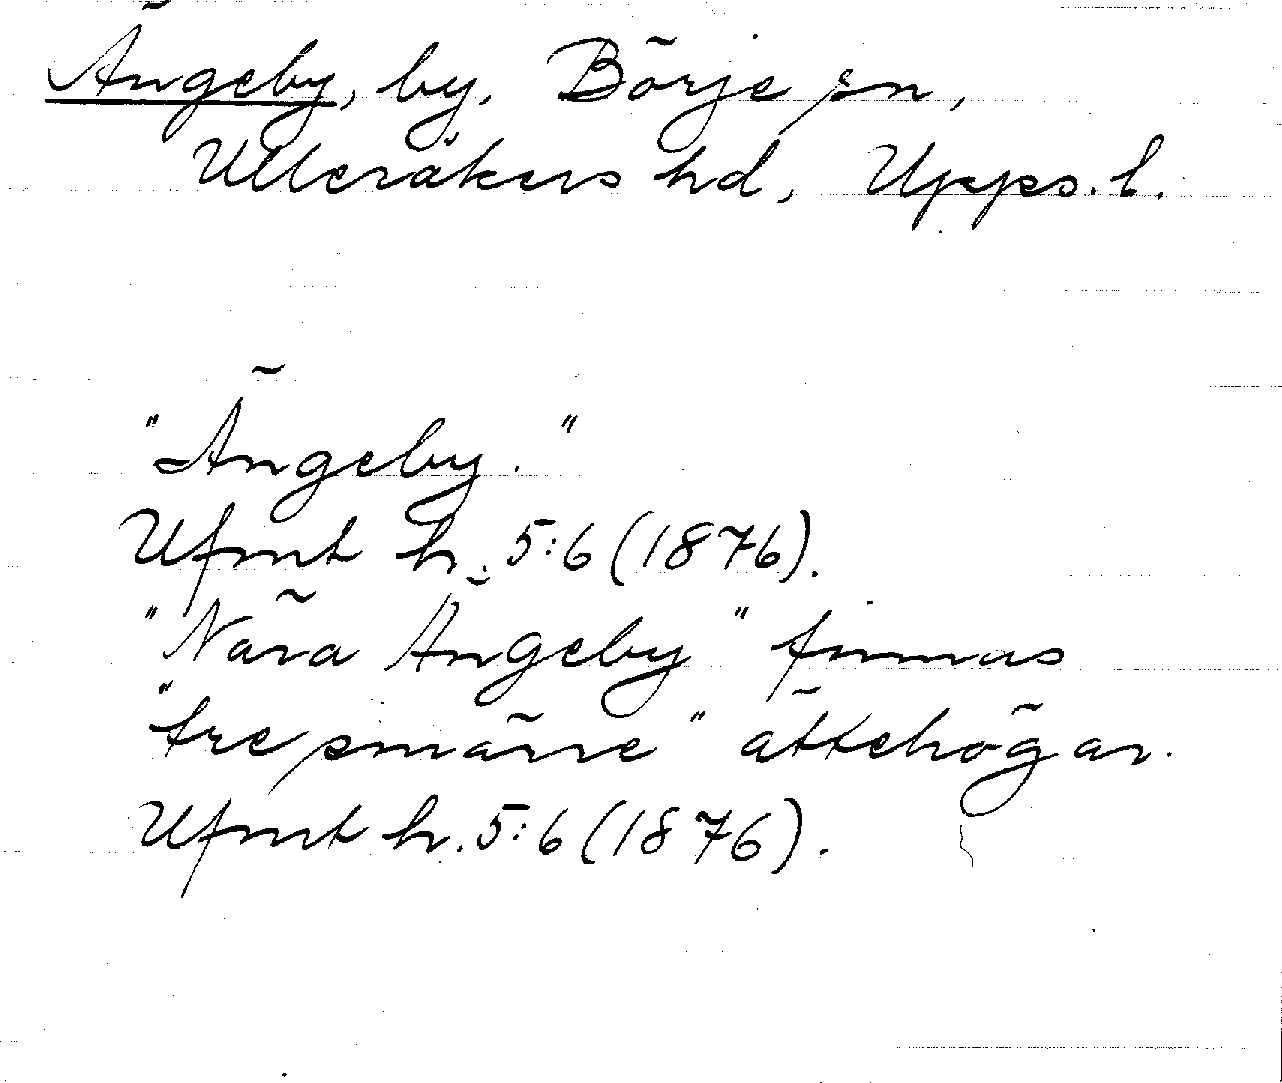 Ängeby, by. Börje sn,
Ulleråkers hd, Upps. l.
"Ängeby."
Ufmt h. 5:6 (1876).
"Nära Ängeby" finnas
"tre smärre" ättehögar.
Ufmt h. 5:6 (1876).